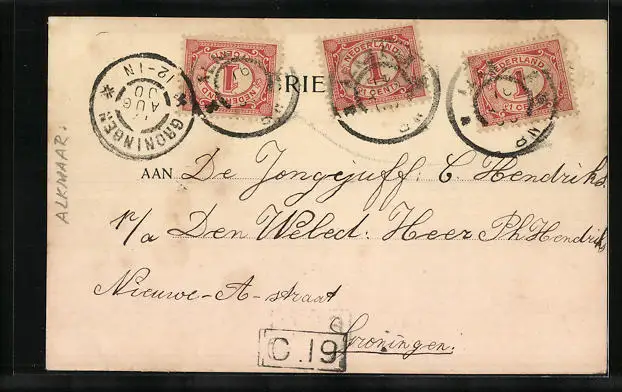 NEDERLAND
1
1 CENT
NEDERLAND
1
1 CENT
NEDERLAND
1
1 CENT
GRONINGEN
12-1N
AUG
00
BRIE
ALKMAAR.
AAN De Jongejuff: C. Hendriks.
p/a Den Weled: Heer Ph Hendriks
Nieuwe-A-straat
Groningen.
C.19